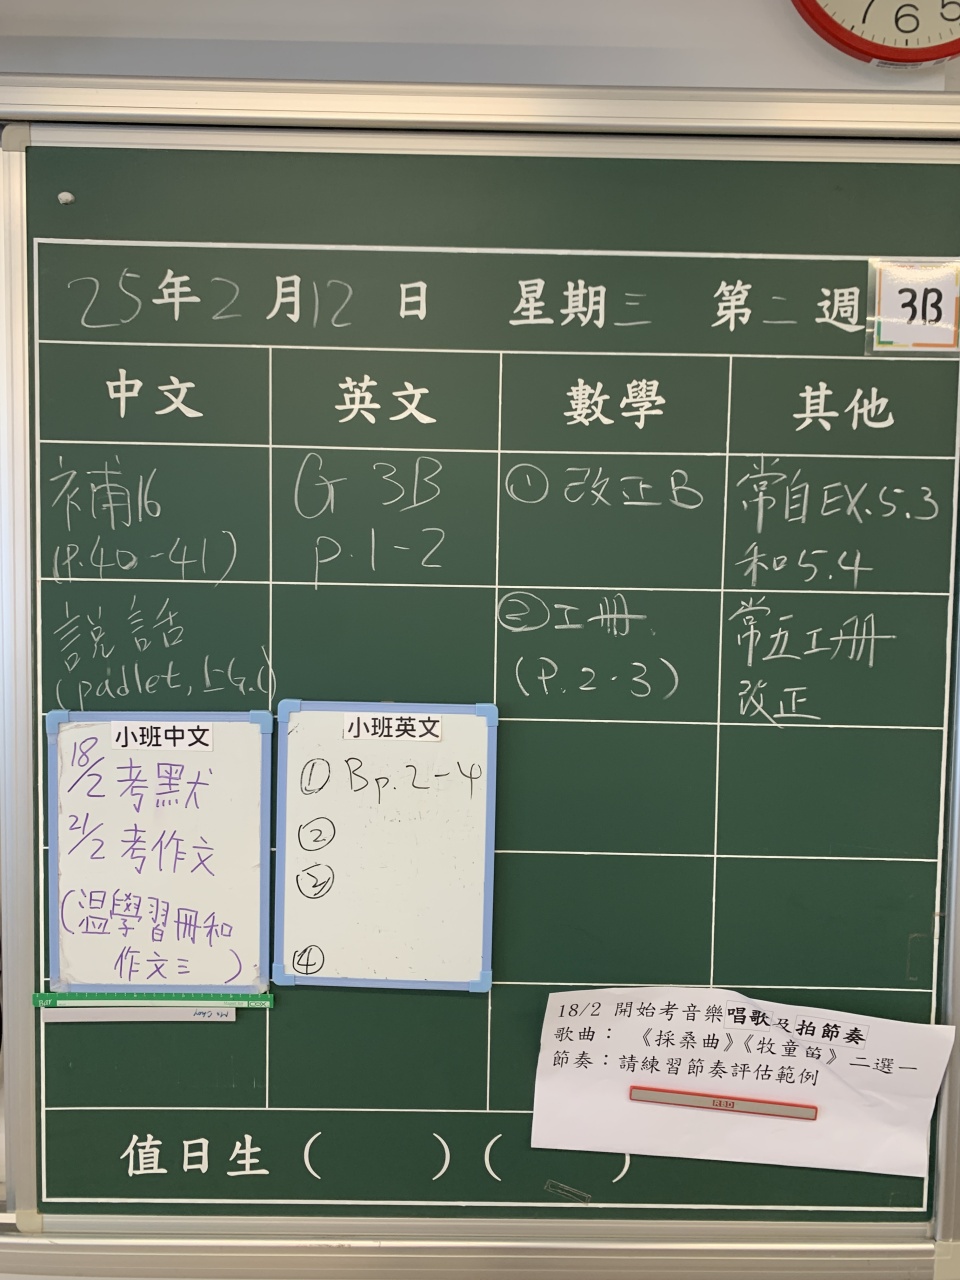 7 6 5
25年2月12日 星期三 第二週 3B
中文 英文 數學 其他
補16
(P.40-41)
G 3B
p.1-2
① 改正B
常自EX.5.3
和5.4
說話
(padlet, 上G.C)
② 工冊
(P.2-3)
常五工冊
改正
小班中文
18/2 考默
21/2 考作文
(溫學習冊和
作文三)
小班英文
① Bp.2-4
②
③
④
18/2 開始考音樂唱歌及拍節奏
歌曲：《採桑曲》《牧童笛》二選一
節奏：請練習節奏評估範例
RED
值日生 ( ) ( )